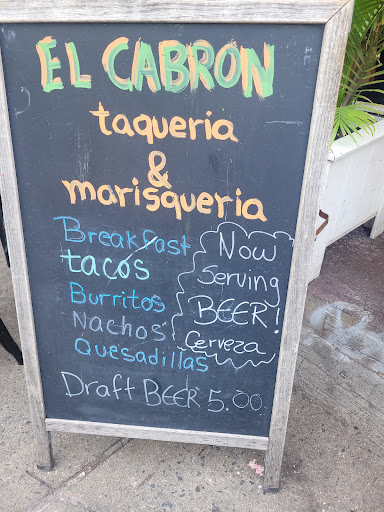 EL CABRON
taqueria
&
marisqueria
Breakfast
tacos
Burritos
Nachos
Quesadillas
Now
Serving
BEER!
Cerveza
Draft BEER 5.00